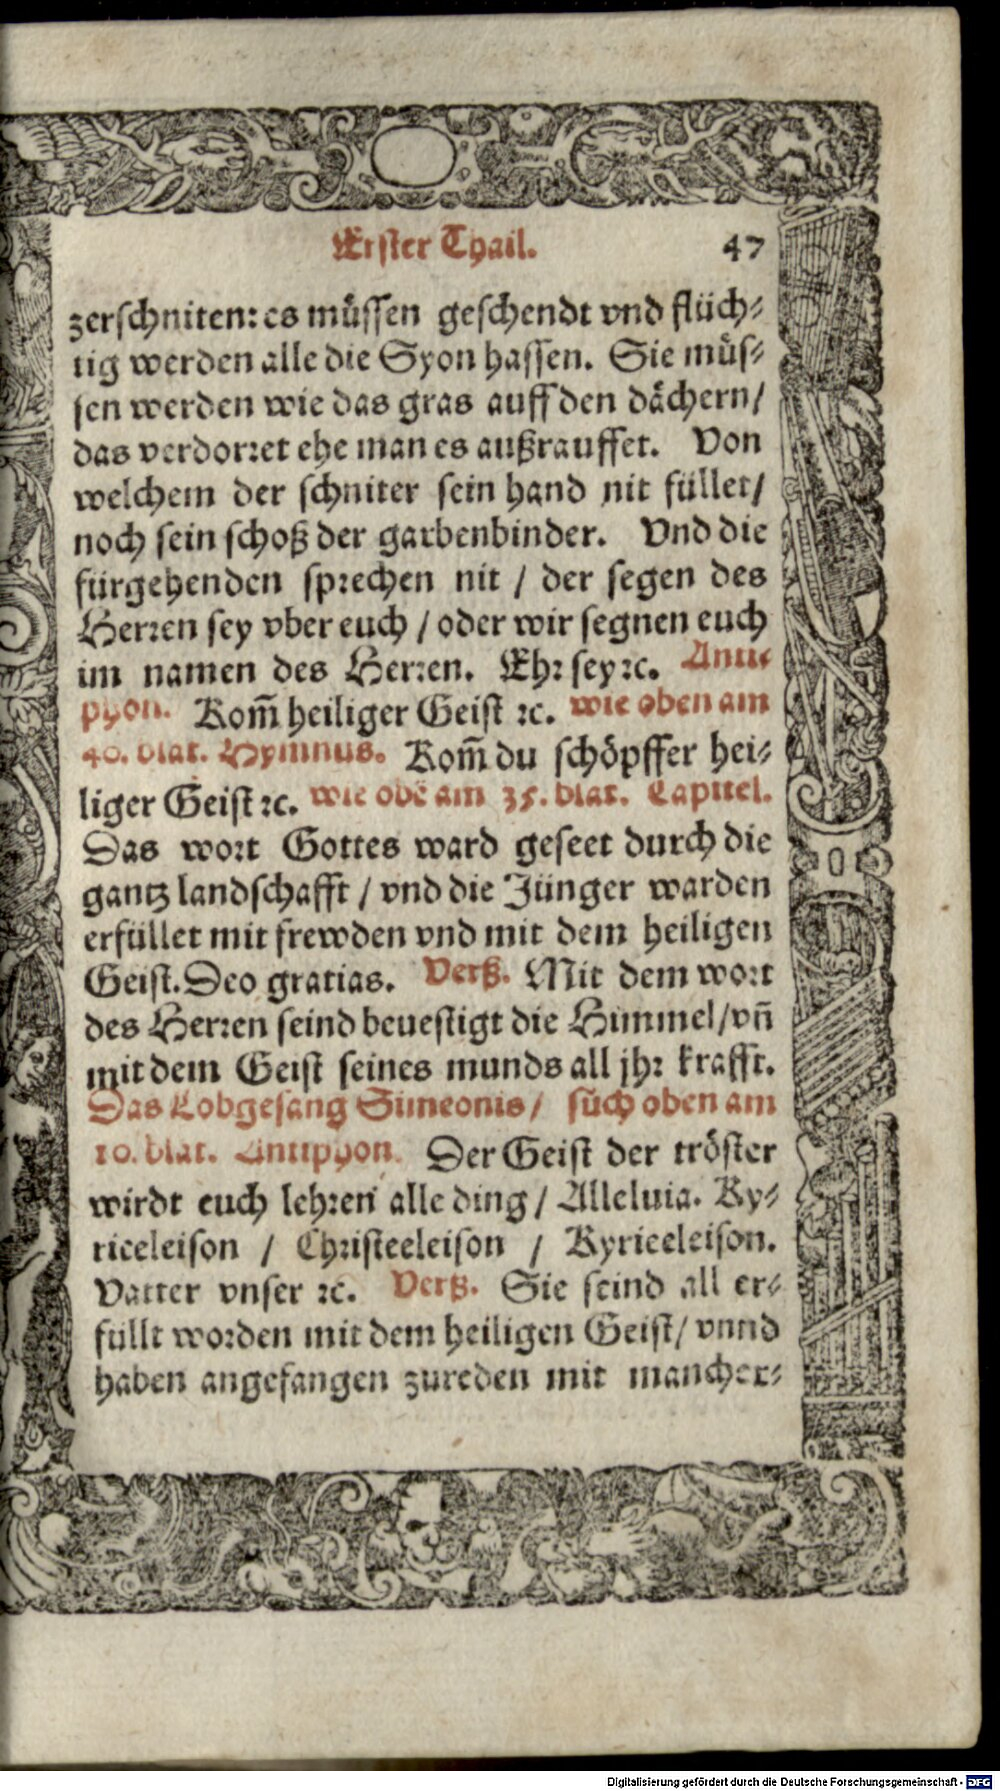 Erster Thail. 47
zerschniten: es müssen geschendt vnd flüch⸗
tig werden alle die Syon hassen. Sie müs⸗
sen werden wie das gras auff den dächern/
das verdorret ehe man es außrauffet. Von
welchem der schniter sein hand nit füllet/
noch sein schoß der garbenbinder. Vnd die
fürgehenden sprechen nit / der segen des
Herren sey vber euch / oder wir segnen euch
im namen des Herren. Ehr sey ꝛc. Anti⸗
phon. Kom̃ heiliger Geist ꝛc. wie oben am
40. blat. Hymnus. Kom̃ du schöpffer hei⸗
liger Geist ꝛc. wie obẽ am 35. blat. Capitel.
Das wort Gottes ward geseet durch die
gantz landschafft / vnd die Jünger warden
erfüllet mit frewden vnd mit dem heiligen
Geist. Deo gratias. Verß. Mit dem wort
des Herren seind beuestigt die Himmel/vñ
mit dem Geist seines munds all jhr krafft.
Das Lobgesang Simeonis/ süch oben am
10. blat. Antiphon. Der Geist der tröster
wirdt euch lehren alle ding / Alleluia. Ky⸗
rieeleison / Christeeleison / Kyrieeleison.
Vatter vnser ꝛc. Verß. Sie seind all er⸗
füllt worden mit dem heiligen Geist/ vnnd
haben angefangen zureden mit mancher⸗
Digitalisierung gefördert durch die Deutsche Forschungsgemeinschaft - DFG